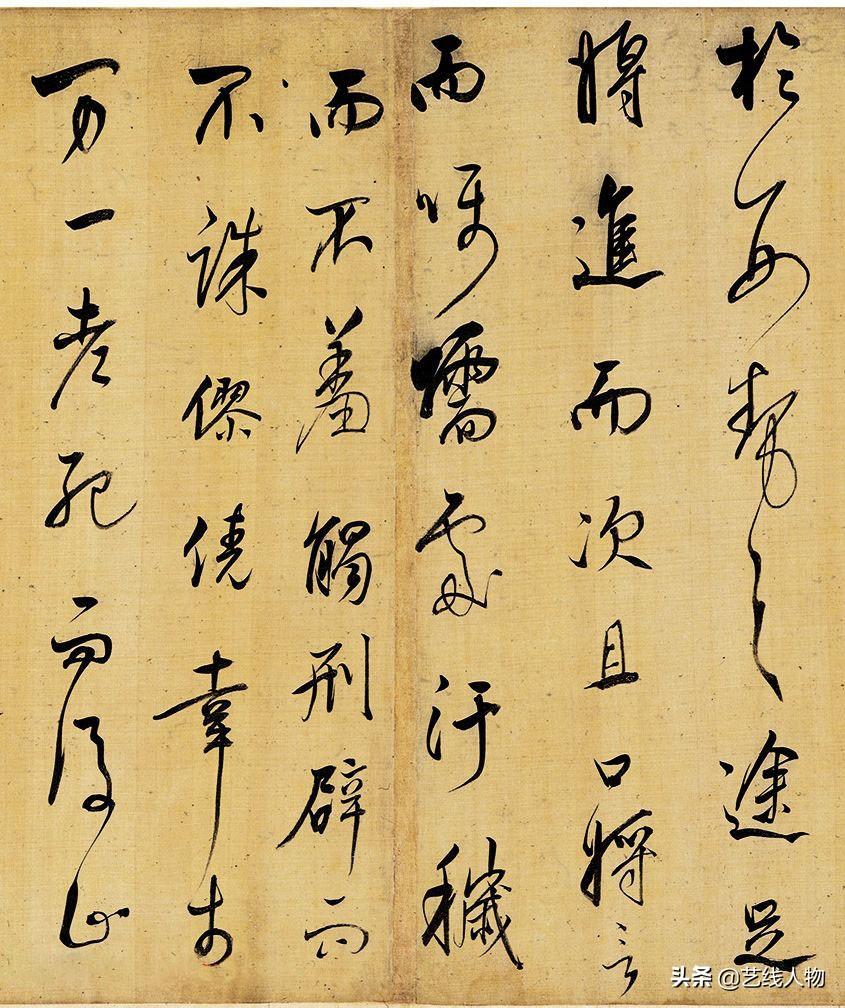 於勢之途足
將進而次且口將言
而囁嚅處汙穢
而不羞觸刑辟而
不誅僇僥幸於
万一老死而後止
头条 @艺线人物